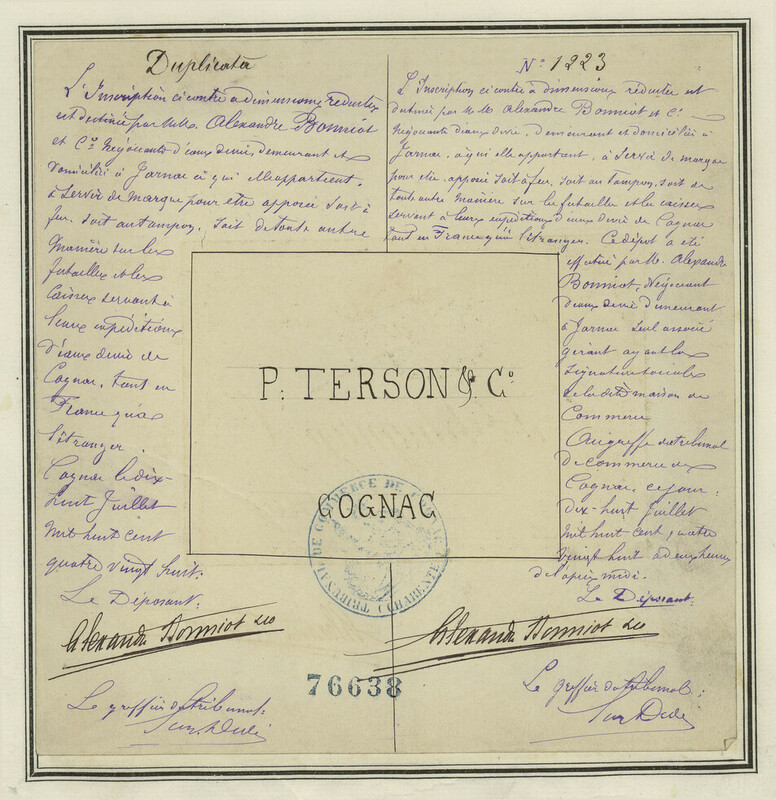 Duplicata
L'Inscription ci contre a dimensions réduites
est destinée par MM. Alexandre Bonniot
et Cº Négociants d'eaux de vie, demeurant et
domiciliés à Jarnac à qui elle appartient,
à servir de marque pour être apposée soit à
feu, soit au tampon, soit de toute autre
manière sur les
futailles et les
caisses servant à
leurs expéditions
d'eaux de vie de
Cognac, tant en
France qu'à
l'étranger.
Cognac le dix-
huit Juillet
mil huit cent
quatre vingt huit.
Le Déposant:
Alexandre Bonniot &Co
Le greffier du tribunal:
Nº 1223
L'Inscription ci contre à dimensions réduites est
destinée par M.M. Alexandre Bonniot et Cº
Négociants d'eaux de vie, demeurant et domiciliés à
Jarnac, à qui elle appartient, à servir de marque
pour être apposée soit à feu, soit au tampon, soit de
toute autre manière sur les futailles et les caisses
servant à leurs expéditions d'eaux de vie de Cognac
tant en France qu'à l'étranger. Ce dépôt a été
effectué par M. Alexandre
Bonniot, Négociant
d'eaux de vie demeurant
à Jarnac seul associé
gérant ayant la
signature sociale
de la dite maison de
Commerce
Au greffe du tribunal
de commerce de
Cognac, ce jour:
dix-huit Juillet
mil huit cent quatre
vingt huit à deux heures
de l'après midi.
Le Déposant:
Alexandre Bonniot &Co
Le greffier du tribunal:
P. TERSON & Cº
COGNAC
TRIBUNAL DE COMMERCE DE COGNAC (CHARENTE)
76638